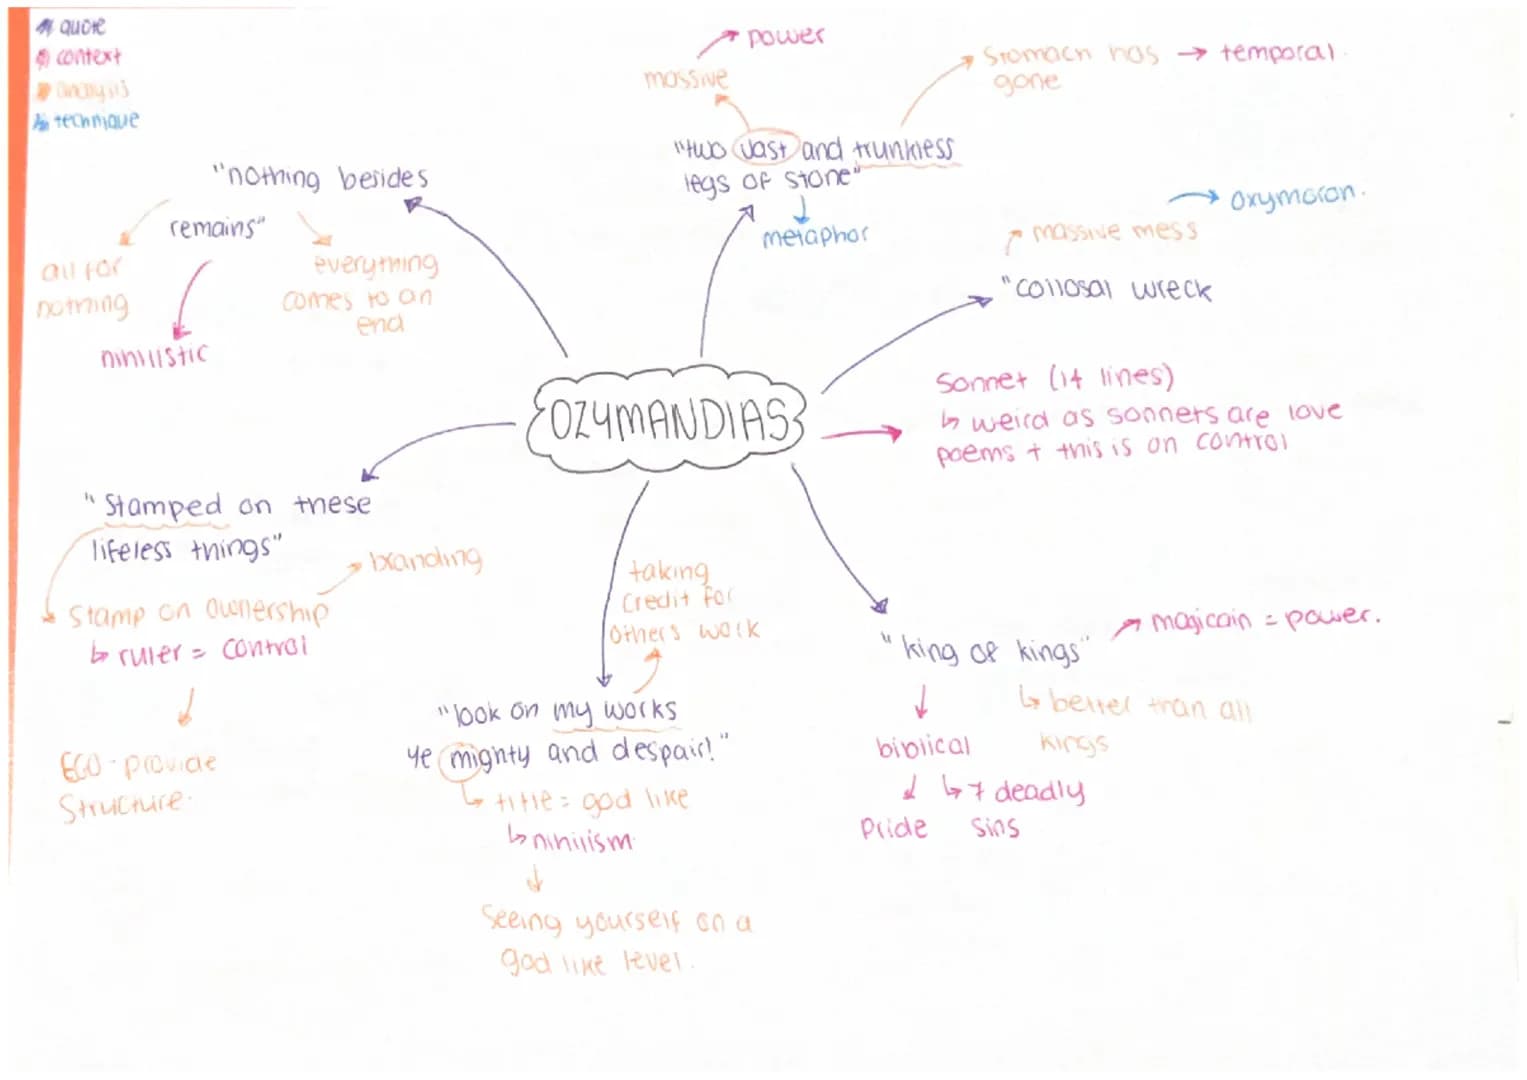 quote
context
analysis
technique
"nothing besides
remains"
all for
nothing
nihilistic
everything
comes to an
end
power
massive
Stomach has
gone
temporal.
"two vast and trunkless
legs of stone"
metaphor
oxymoron.
massive mess
"collosal wreck
OZYMANDIAS
Sonnet (14 lines)
↳ weird as sonnets are love
poems + this is on control
"Stamped on these
lifeless things"
branding
Stamp on ownership
↳ ruler = control
EGO - provide
Structure.
taking
credit for
others work
"look on my works
ye mighty and despair!"
↳ title = god like
↳ nihilism.
Seeing yourself on a
god like level.
"king of kings"
magicain = power.
↳ better than all
kings
biblical
↳ 7 deadly
sins
Pride